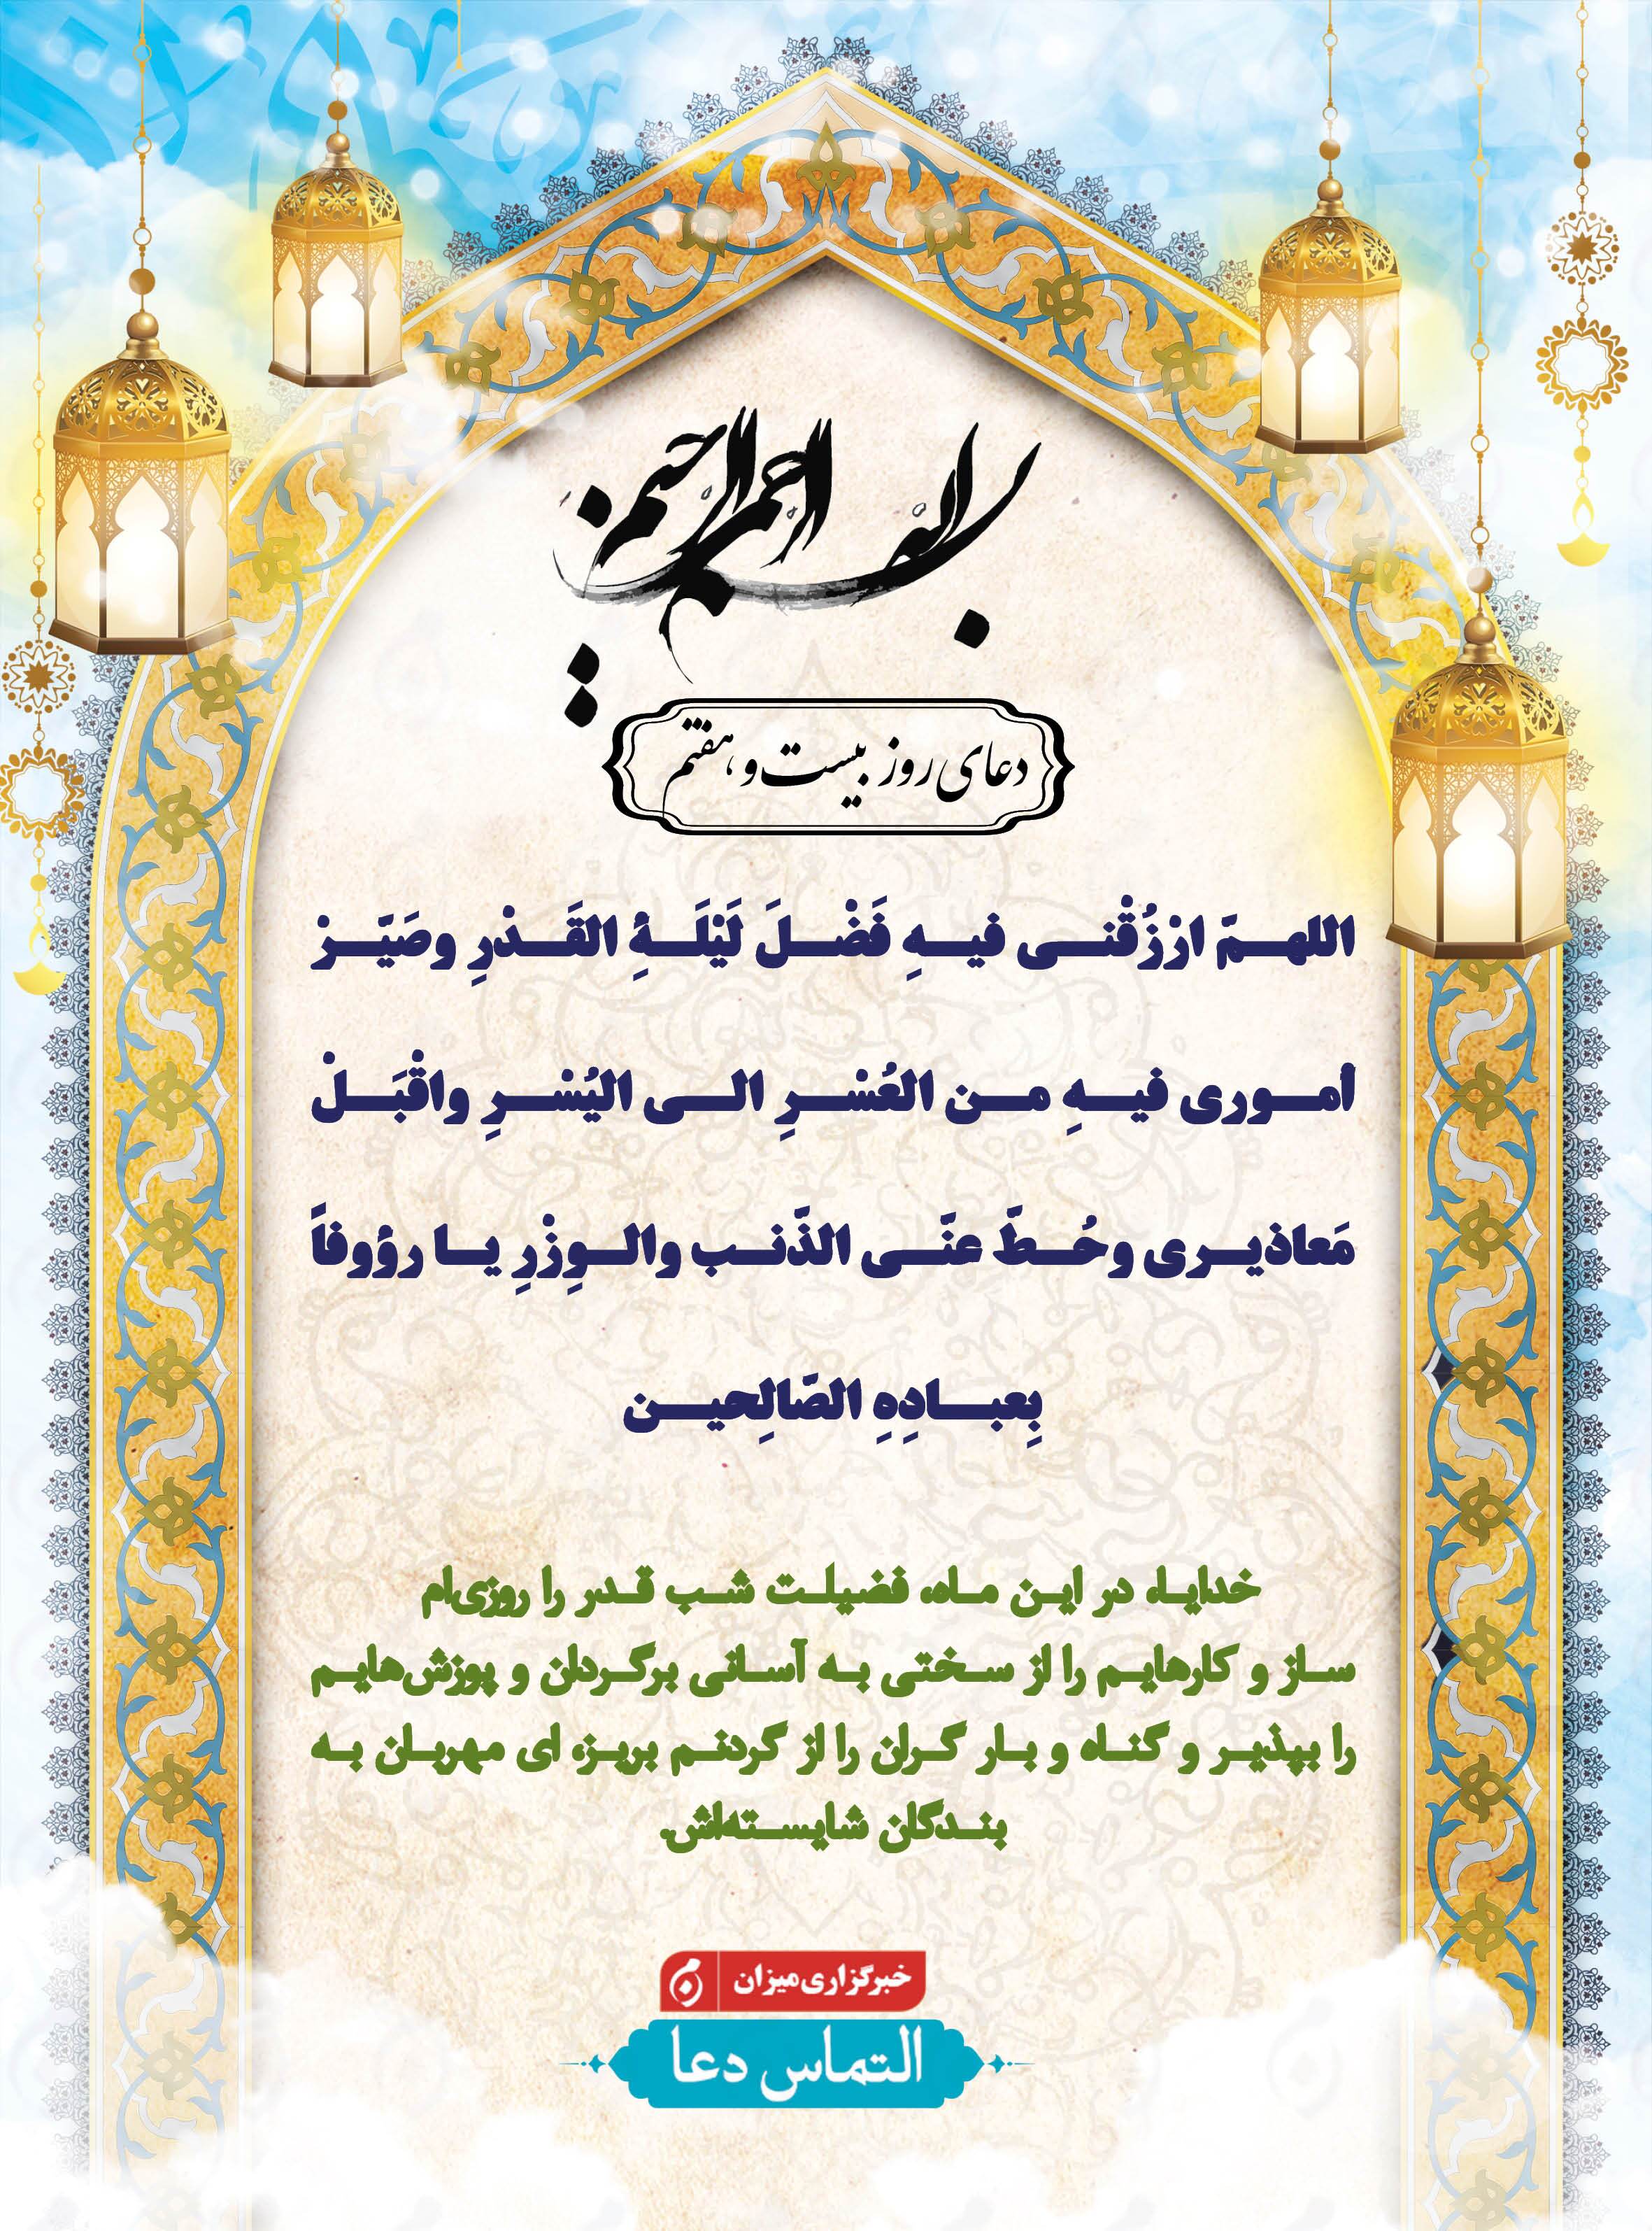 بسم الله الرحمن الرحیم
دعای روز بیست و هفتم
اللهمّ ارْزُقْنی فیهِ فَضْلَ لَیْلَةِ القَدْرِ وصَیّرْ
أموری فیهِ من العُسْرِ الی الیُسْرِ واقْبَلْ
مَعاذیری وحُطّ عنّی الذّنب والوِزْرِ یا رؤوفاً
بِعبادِهِ الصّالِحین
خدایا، در این ماه، فضیلت شب قدر را روزی‌ام
ساز و کارهایم را از سختی به آسانی برگردان و پوزش‌هایم
را بپذیر و گناه و بار گران را از گردنم بریز، ای مهربان به
بندگان شایسته‌اش.
خبرگزاری میزان
التماس دعا